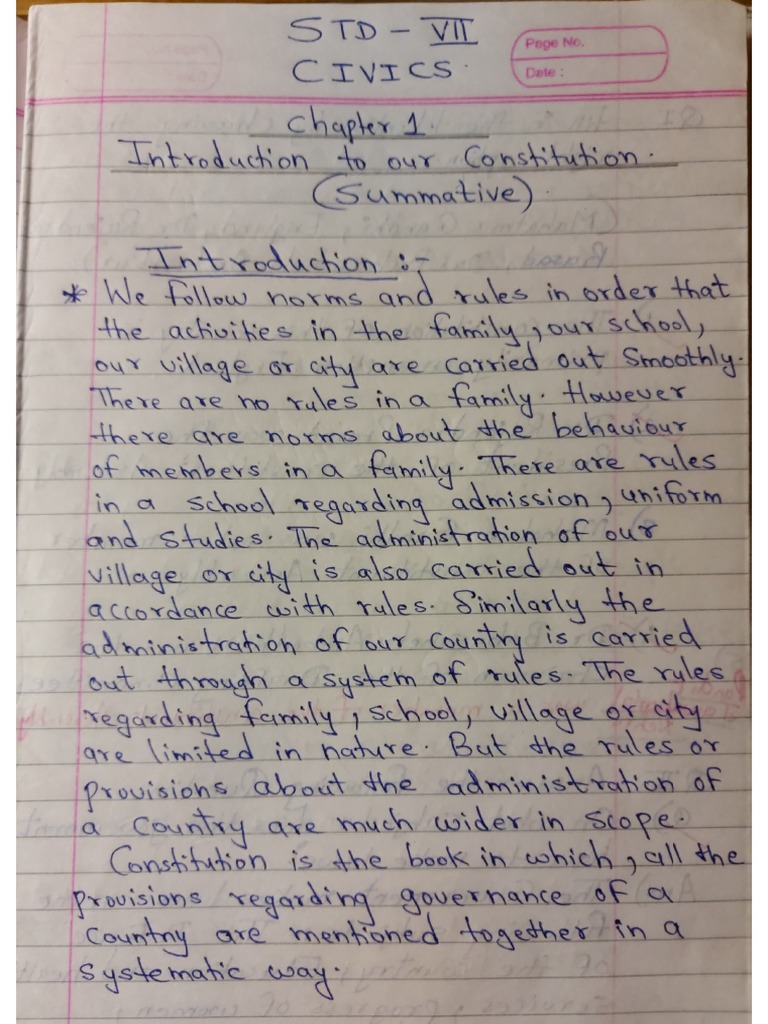 STD - VII
CIVICS.
Page No.
Date :
Chapter 1.
Introduction to our Constitution.
(Summative)
Introduction :-
* We follow norms and rules in order that
the activities in the family, our school,
our village or city are carried out smoothly.
There are no rules in a family. However
there are norms about the behaviour
of members in a family. There are rules
in a school regarding admission, uniform
and studies. The administration of our
village or city is also carried out in
accordance with rules. Similarly the
administration of our country is carried
out through a system of rules. The rules
regarding family, school, village or city
are limited in nature. But the rules or
provisions about the administration of
a country are much wider in scope.
Constitution is the book in which, all the
provisions regarding governance of a
country are mentioned together in a
systematic way.